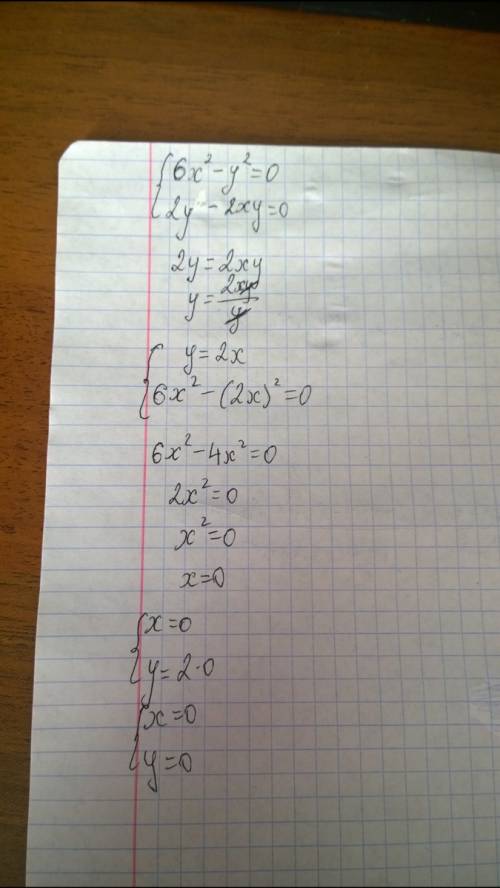 {6x² - y² = 0
{2y - 2xy = 0
2y = 2xy
y = 2xy/y
{y = 2x
{6x² - (2x)² = 0
6x² - 4x² = 0
2x² = 0
x² = 0
x = 0
{x = 0
{y = 2·0
{x = 0
{y = 0